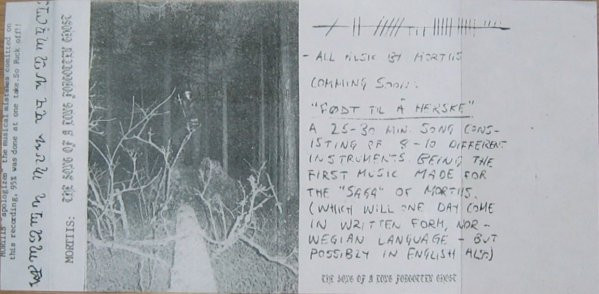 MORTIIS "apologizes" the musical mistakes comitted on
this recording, 95% was done at one take.So Fuck off!!
MORTIIS: THE SONG OF A LONG FORGOTTEN GHOST
- ALL MUSIC BY MORTIIS
COMMING SOON:
"FØDT TIL Å HERSKE"
A 25-30 MIN SONG CONS-
ISTING OF 8-10 DIFFERENT
INSTRUMENTS. BEING THE
FIRST MUSIC MADE FOR
THE "SAGA" OF MORTIIS.
(WHICH WILL ONE DAY COME
IN WRITTEN FORM, NOR-
WEGIAN LANGUAGE - BUT
POSSIBLY IN ENGLISH ALSO)
THE SONG OF A LONG FORGOTTEN GHOST